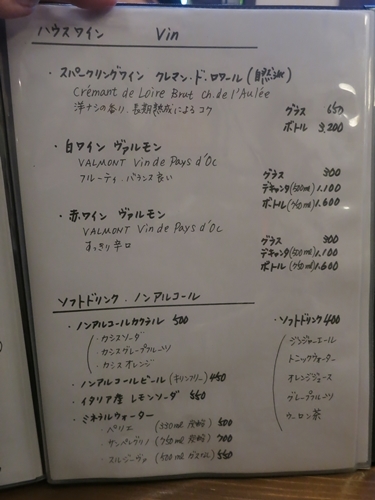 ハウスワイン Vin
・スパークリングワイン クレマン・ド・ロワール (自然派)
Crémant de Loire Brut Ch. de l'Aulée
洋ナシの香り、長期熟成によるコク グラス 650
ボトル 3,200
・白ワイン ヴァルモン
VALMONT Vin de Pays d'Oc グラス 300
フルーティ、バランス良い デキャンタ(500ml) 1,100
ボトル(750ml) 1,600
・赤ワイン ヴァルモン
VALMONT Vin de Pays d'Oc グラス 300
すっきり辛口 デキャンタ(500ml) 1,100
ボトル(750ml) 1,600
ソフトドリンク・ノンアルコール
・ノンアルコールカクテル 500 ・ソフトドリンク 400
・カシスソーダ ジンジャーエール
・カシスグレープフルーツ トニックウォーター
・カシスオレンジ オレンジジュース
・ノンアルコールビール (キリンフリー) 450 グレープフルーツ
・イタリア産 レモンソーダ 550 ウーロン茶
・ミネラルウォーター
・ペリエ (330ml 炭酸) 500
・サンペレグリノ (750ml 炭酸) 700